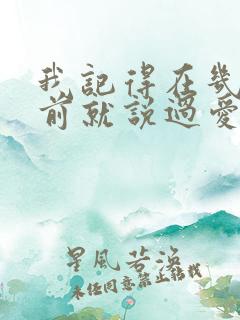 我記得在幾
前就說過愛
星風若海
未经同意禁止转载